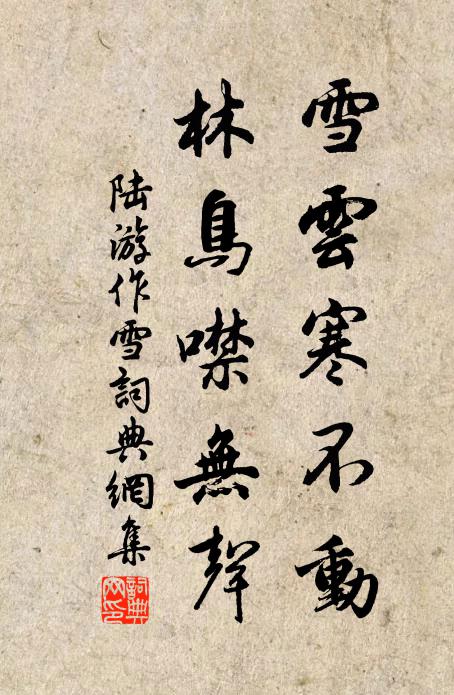 雪雲寒不動
林鳥噤無聲
陆游作雪詞典網集
詞典
网印